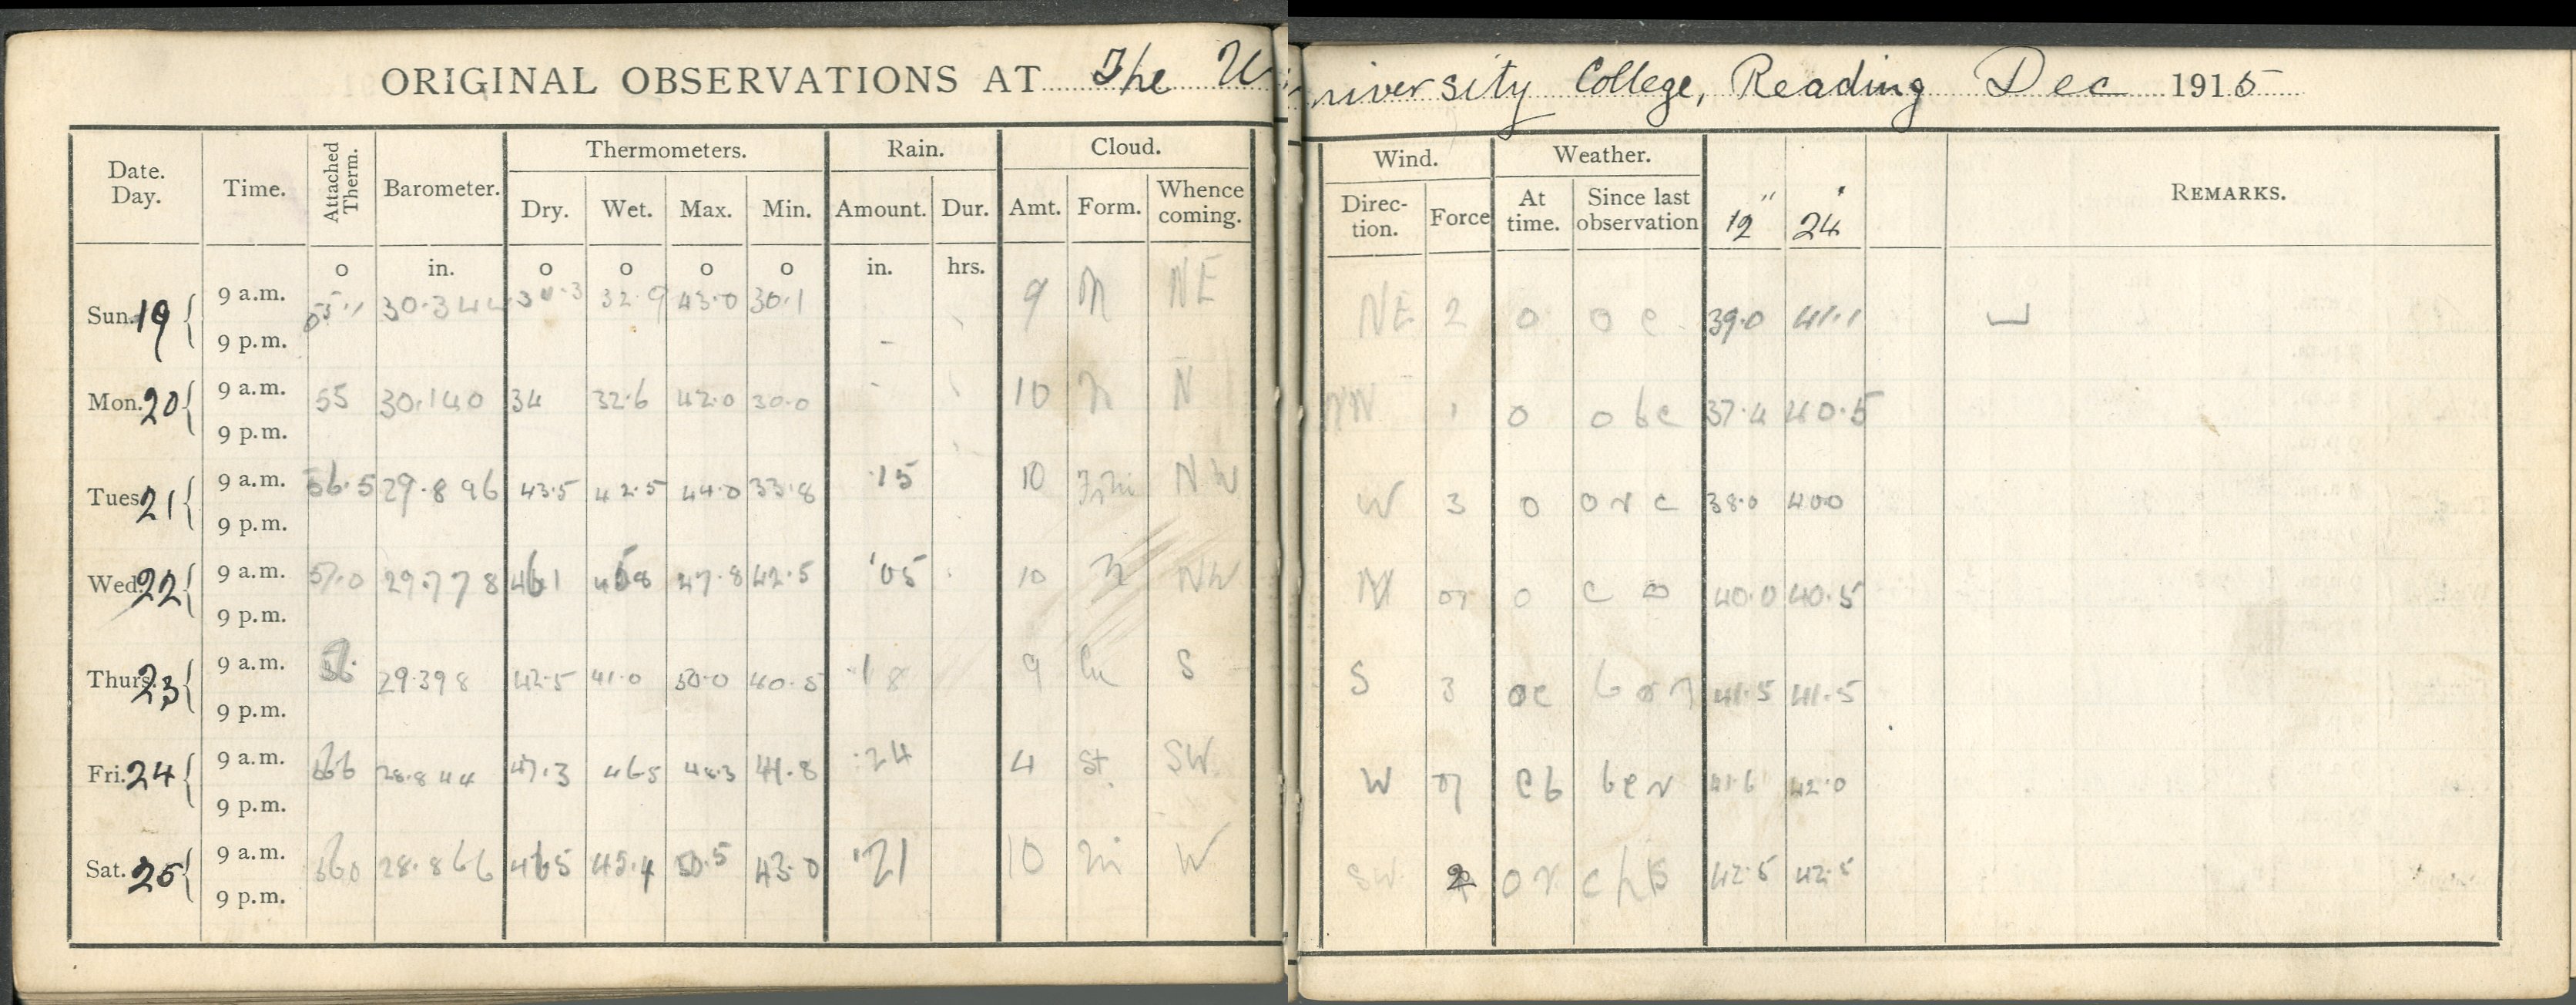 ORIGINAL OBSERVATIONS AT The University College, Reading Dec 1915
Date. Day. Time. Attached Therm. Barometer. Thermometers. Rain. Cloud. Wind. Weather. REMARKS.
Dry. Wet. Max. Min. Amount. Dur. Amt. Form. Whence coming. Direc-tion. Force At time. Since last observation 12" 24
o in. o o o o in. hrs.
Sun. 19 9 a.m. 30.344 32.9 43.0 30.1 9 NE NE 2 o o c 39.0 41.1
9 p.m. -
Mon. 20 9 a.m. 55 30.140 34 32.6 42.0 30.0 - 10 N 1 o o b c 37.4 40.5
9 p.m.
Tues. 21 9 a.m. 56.5 29.896 43.5 42.5 44.0 33.8 .15 10 NW W 3 o o r c 38.0 400
9 p.m.
Wed. 22 9 a.m. 57.0 29.778 461 47.8 42.5 .05 10 NW o c o 40.0 40.5
9 p.m.
Thurs. 23 9 a.m. 29.398 42.5 41.0 50.0 40.5 .18 9 Cu S S 3 oc 41.5 41.5
9 p.m.
Fri. 24 9 a.m. 566 28.844 47.3 465 48.3 41.8 .24 4 St. SW. W cb bcr 41.6 42.0
9 p.m.
Sat. 25 9 a.m. 560 28.866 465 45.4 50.5 43.0 .21 10 Ni W SW. 2 or 42.5 42.5
9 p.m.